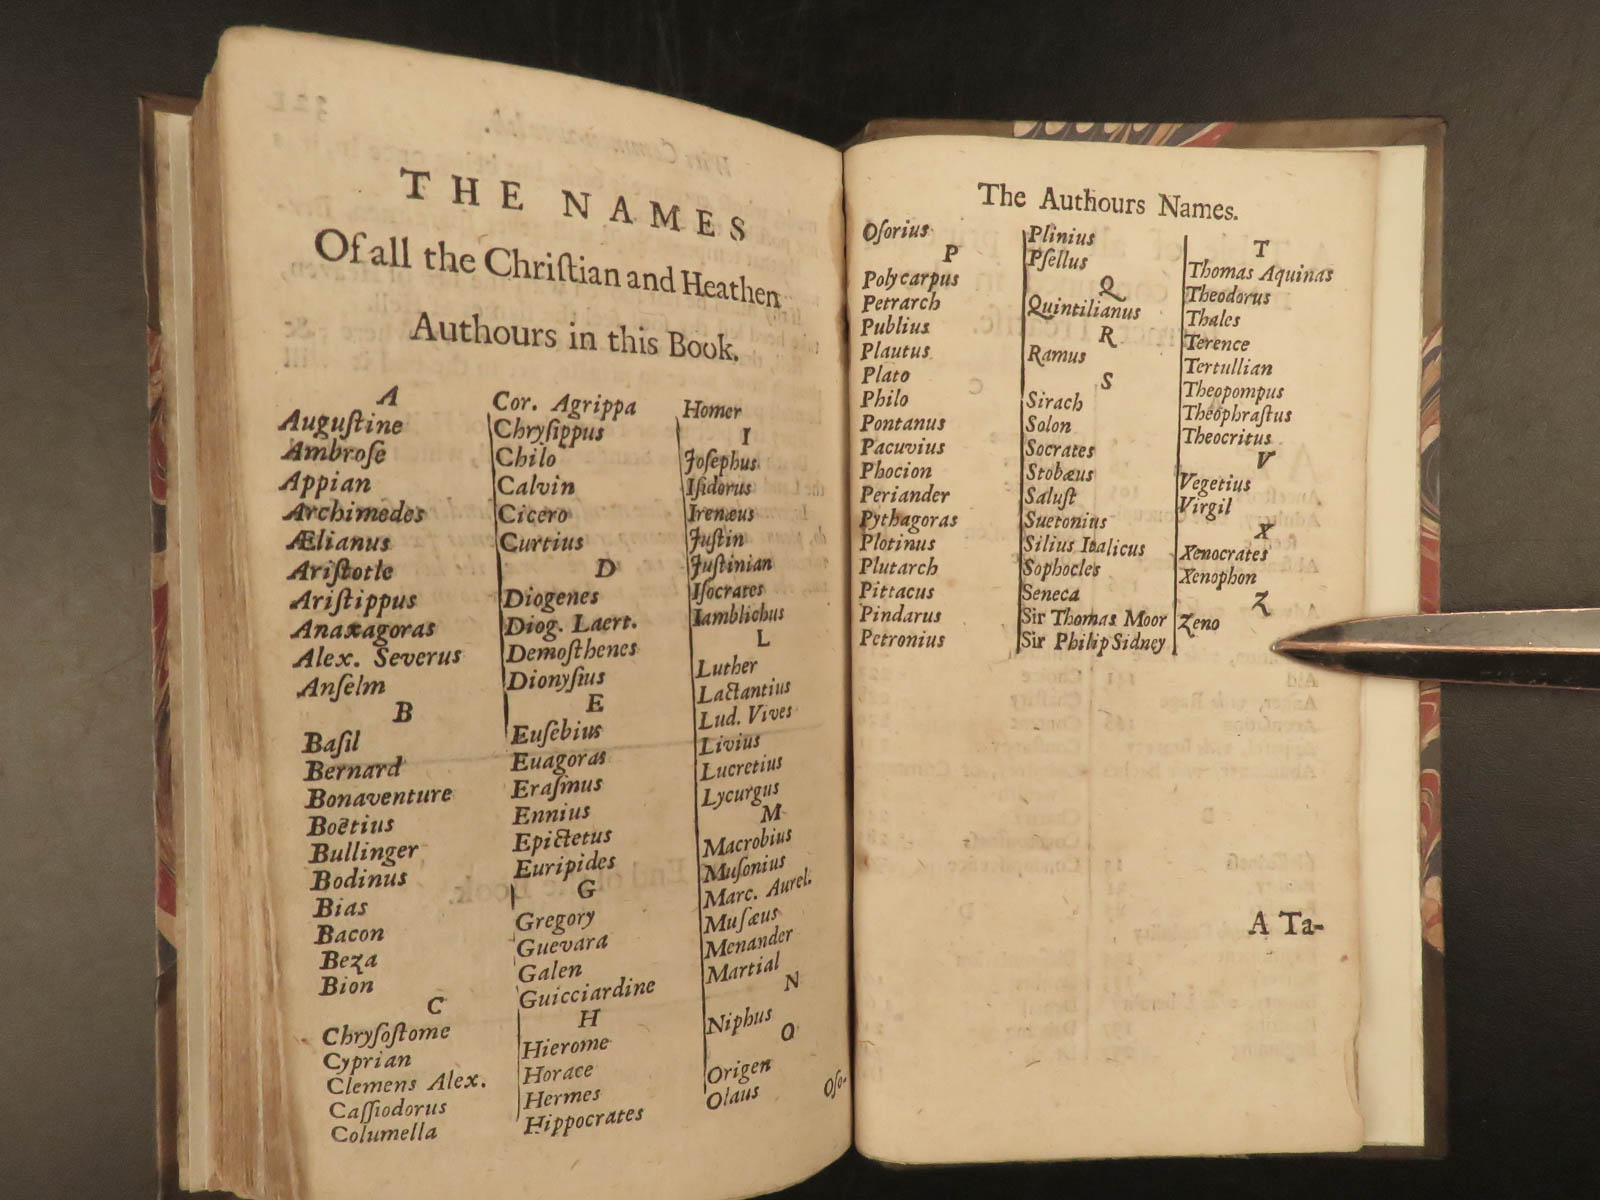 THE NAMES
Of all the Chriſtian and Heathen
Authours in this Book.
A
Auguſtine
Ambroſe
Appian
Archimedes
Ælianus
Ariſtotle
Ariſtippus
Anaxagoras
Alex. Severus
Anſelm
B
Baſil
Bernard
Bonaventure
Boëtius
Bullinger
Bodinus
Bias
Bacon
Beza
Bion
C
Chryſoſtome
Cyprian
Clemens Alex.
Caſſiodorus
Columella
Cor. Agrippa
Chryſippus
Chilo
Calvin
Cicero
Curtius
D
Diogenes
Diog. Laert.
Demoſthenes
Dionyſius
E
Euſebius
Euagoras
Eraſmus
Ennius
Epictetus
Euripides
G
Gregory
Guevara
Galen
Guicciardine
H
Hierome
Horace
Hermes
Hippocrates
Homer
I
Joſephus
Iſidorus
Irenæus
Juſtin
Juſtinian
Iſocrates
Iamblichus
L
Luther
Lactantius
Lud. Vives
Livius
Lucretius
Lycurgus
M
Macrobius
Muſonius
Marc. Aurel.
Muſæus
Menander
Martial
N
Niphus
O
Origen
Olaus
Oſo-
The Authours Names.
Oſorius
P
Polycarpus
Petrarch
Publius
Plautus
Plato
Philo
Pontanus
Pacuvius
Phocion
Periander
Pythagoras
Plotinus
Plutarch
Pittacus
Pindarus
Petronius
Plinius
Pſellus
Q
Quintilianus
R
Ramus
S
Sirach
Solon
Socrates
Stobæus
Saluſt
Suetonius
Silius Italicus
Sophocles
Seneca
Sir Thomas Moor
Sir Philip Sidney
T
Thomas Aquinas
Theodorus
Thales
Terence
Tertullian
Theopompus
Theophraſtus
Theocritus
V
Vegetius
Virgil
X
Xenocrates
Xenophon
Z
Zeno
A Ta-